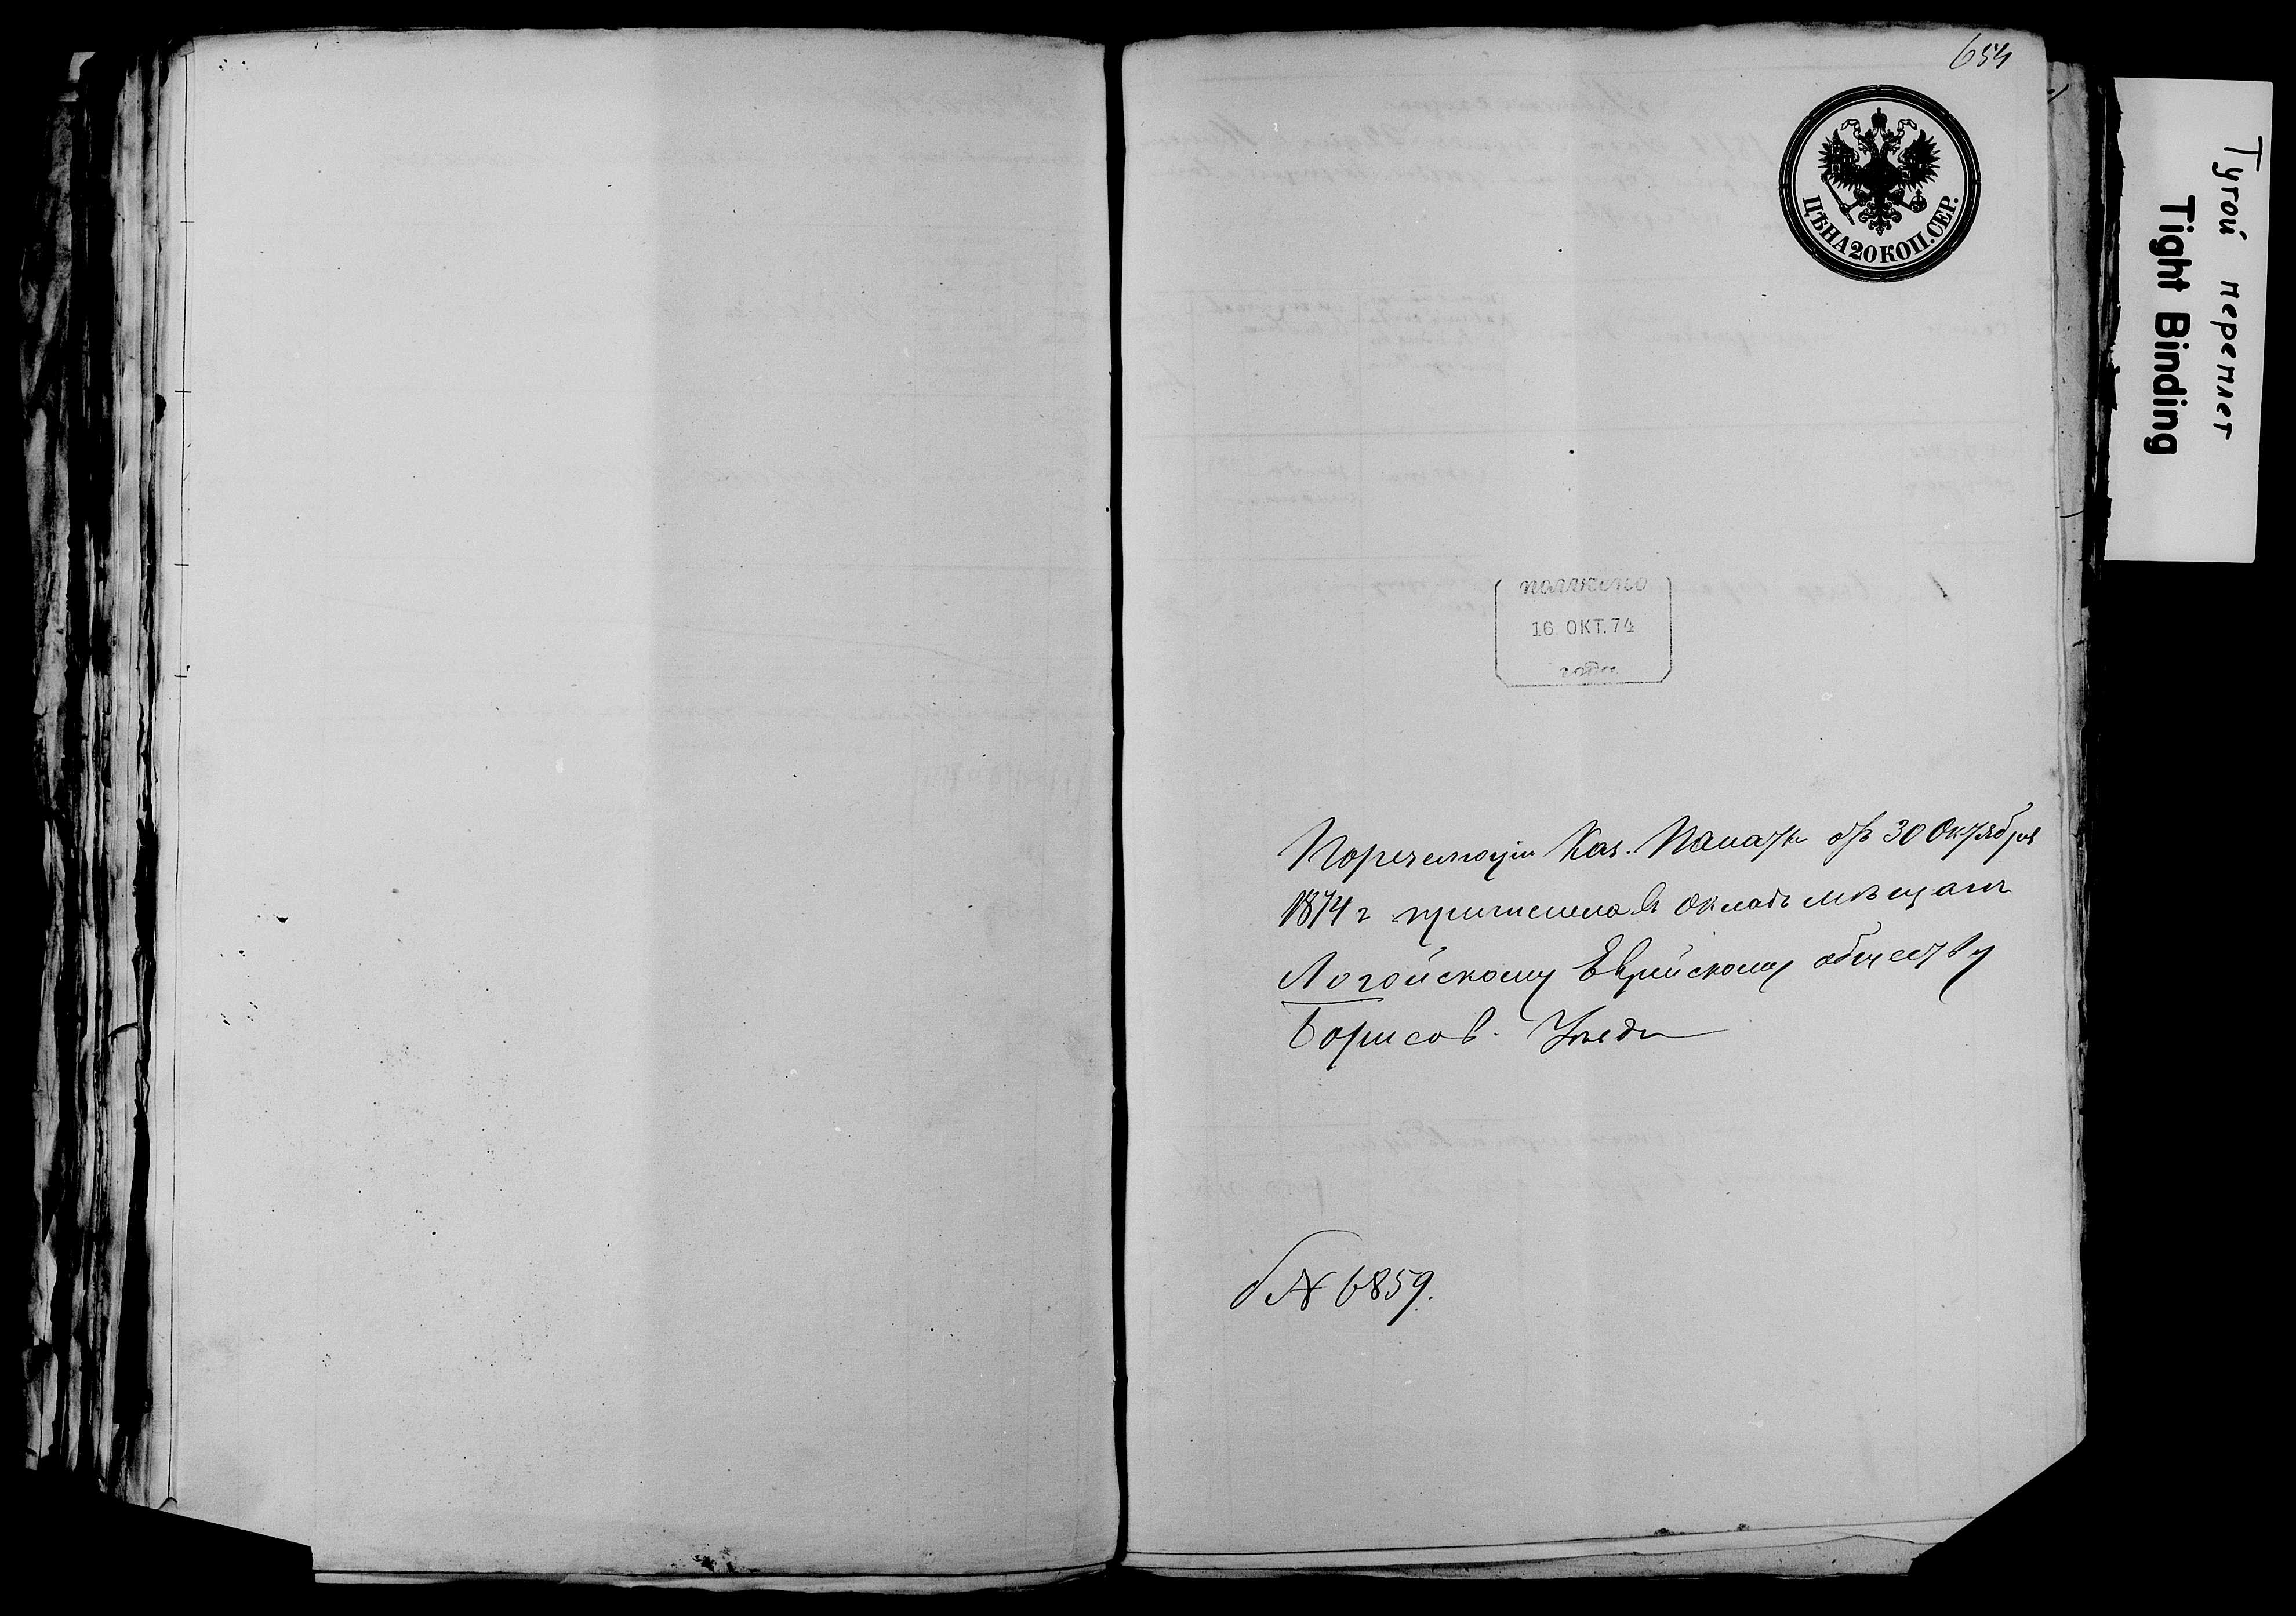 654
ЦѢНА 20 КОП. СЕР.
Тугой переплет
Tight Binding
получено
16 ОКТ. 74
года
Каз. Палаты отъ 30 Октября
1874 г причислена въ окладъ мѣщанъ
Логойскому Еврейскому обществу
Борисов. Уѣзда
№ 6859.